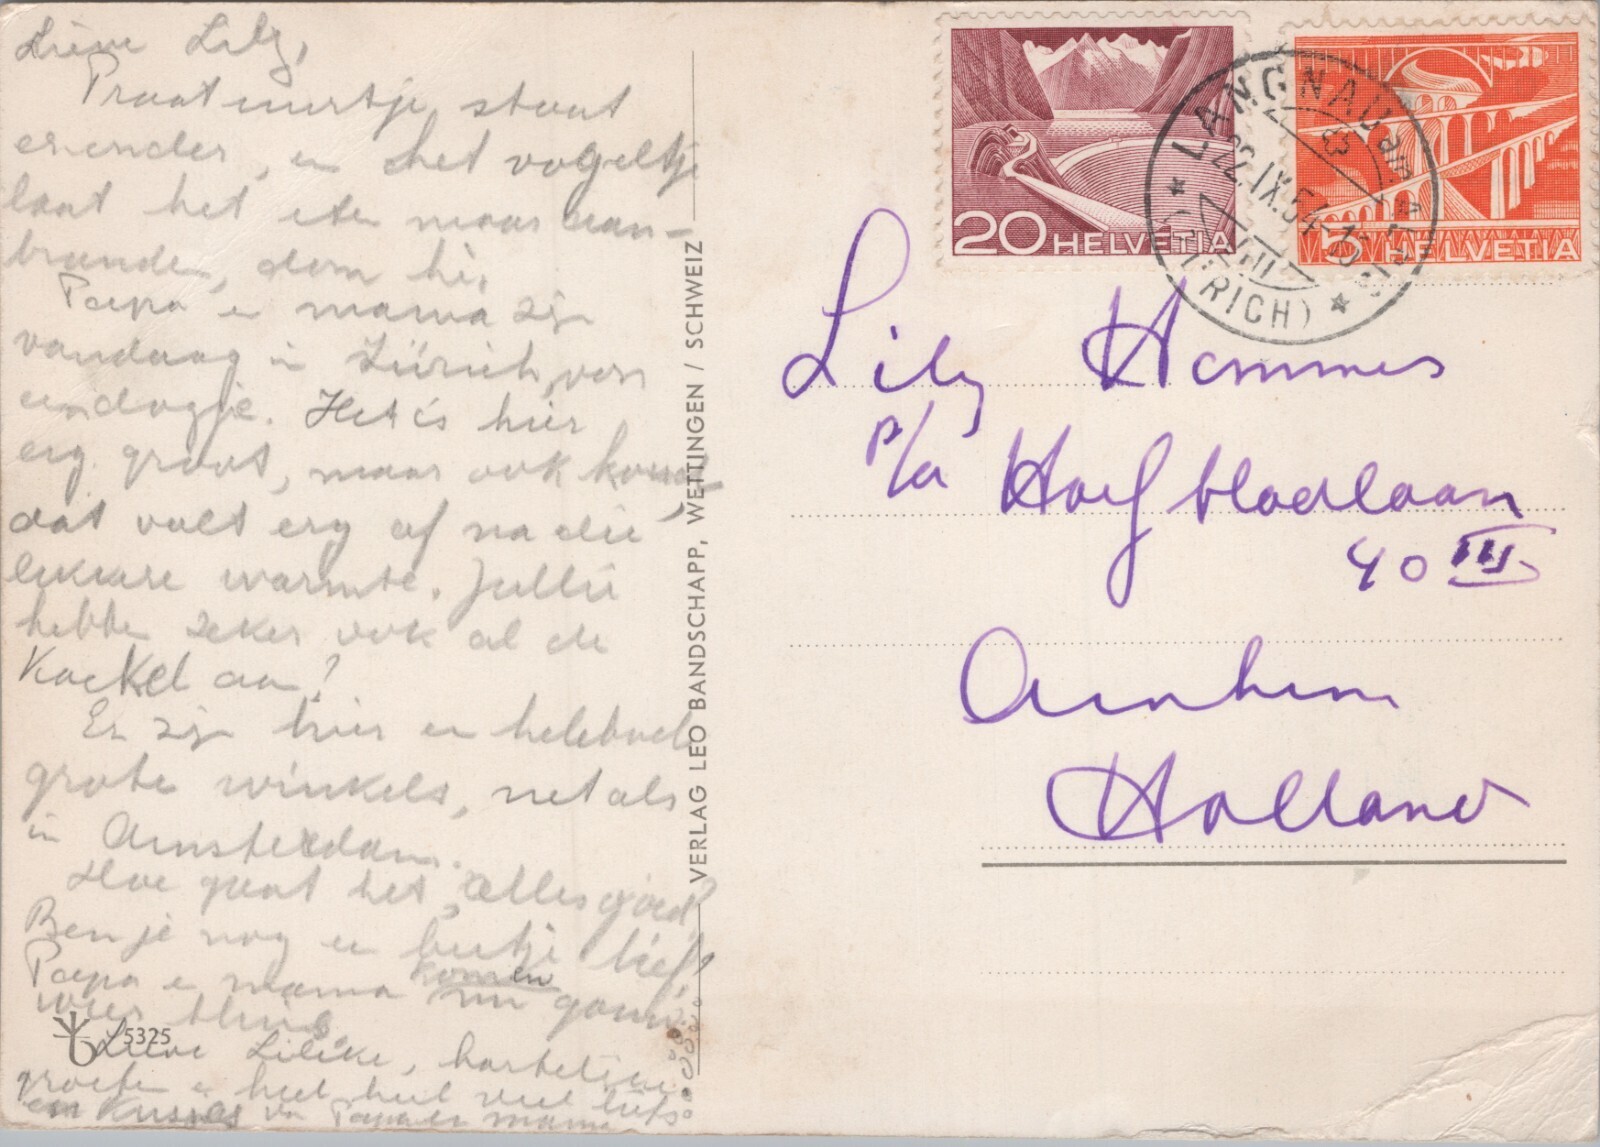 Lieve Lily,
Praatuurtje, staat
eronder, en het vogeltje
laat het eten maar aan-
branden, dom hè,
Papa en mama zijn
vandaag in Zürich, een
eindagje. Het is hier
erg groot, maar ook koud,
dat valt erg af na die
lekkere warmte. Jullie
hebben zeker ook al de
Kachel aan?
Er zijn hier een heleboel
grote winkels, net als
in Amsterdam.
Hoe gaat het, alles goed?
Ben je nog een beetje lief?
Papa en mama komen nu gauw
weer thuis.
Lieve Lilike, hartelijke
groeten en heel heel veel liefs
en kusjes van Papa en mama
5325
VERLAG LEO BANDSCHAPP, WETTINGEN / SCHWEIZ
20 HELVETIA
5 HELVETIA
LANGNAU am ALBIS
22.IX.54-10
(ZÜRICH)
Lily Hommes
p/a Hoefbladlaan
40 III
Arnhem
Holland